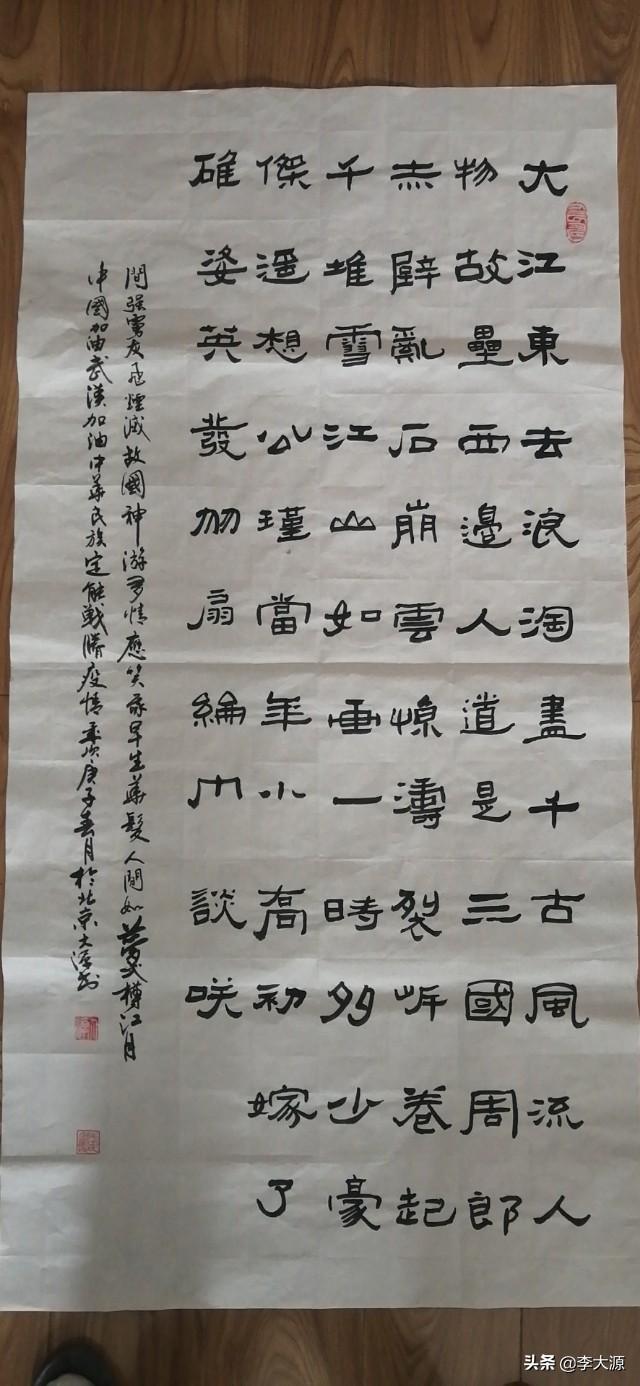 大江東去浪淘盡千古風流人
物故壘西邊人道是三國周郎
赤壁亂石崩雲惊濤裂岍卷起
千堆雪江山如画一時多少豪
傑遥想公瑾當年小喬初嫁了
雄姿英發羽扇綸巾談咲
間强虜灰飛煙滅故國神游多情應笑我早生華髮人間如夢樽江月
中國加油武漢加油中華民族定能戰勝疫情歲次庚子春月於北京大源書
头条 @李大源